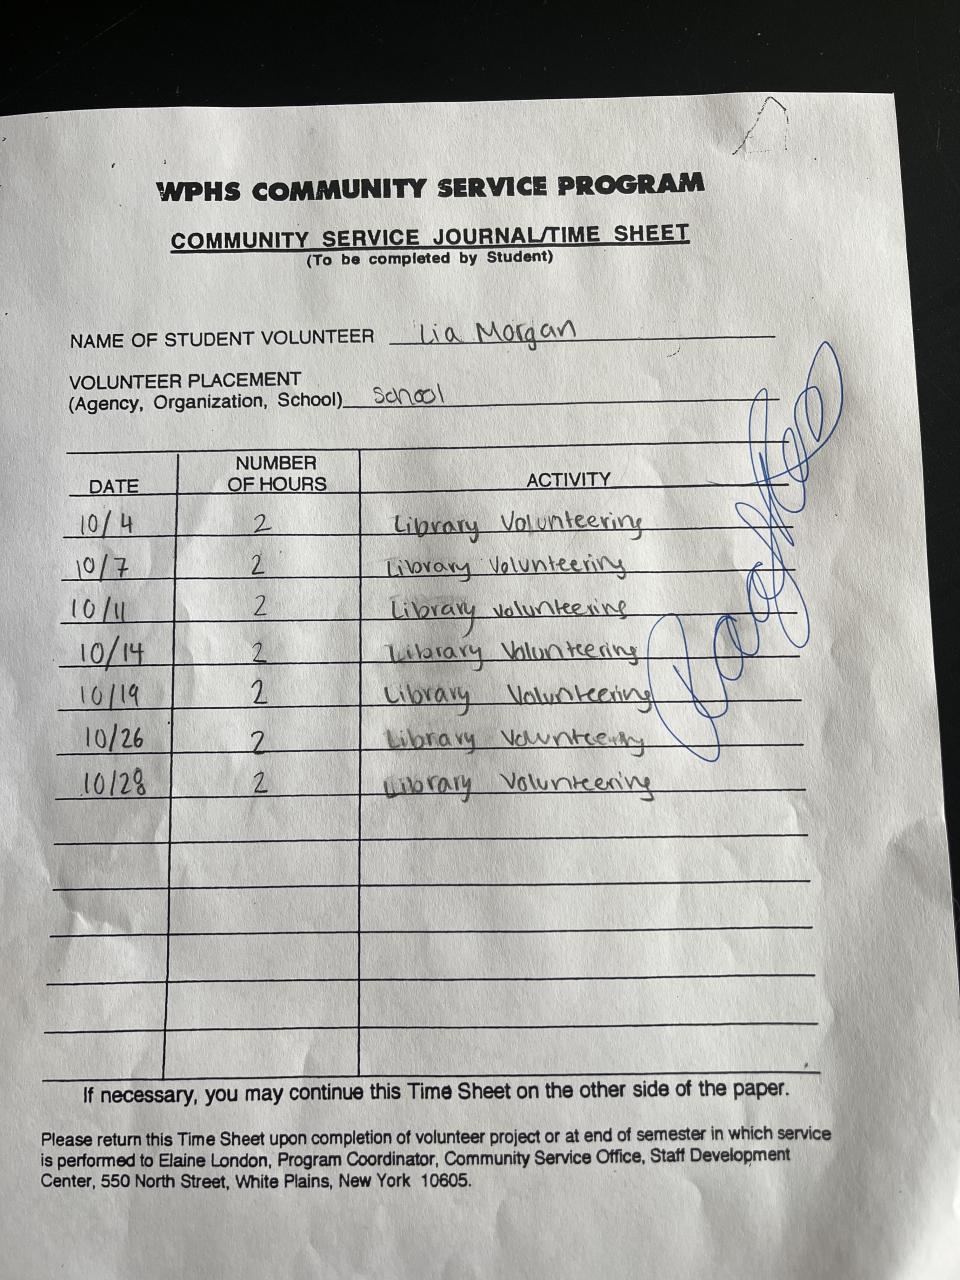 WPHS COMMUNITY SERVICE PROGRAM
COMMUNITY SERVICE JOURNAL/TIME SHEET
(To be completed by Student)
NAME OF STUDENT VOLUNTEER Lia Morgan
VOLUNTEER PLACEMENT
(Agency, Organization, School) School
DATE NUMBER OF HOURS ACTIVITY
10/4 2 Library Volunteering
10/7 2 Library Volunteering
10/11 2 Library volunteering
10/14 2 Library Volunteering
10/19 2 Library Volunteering
10/26 2 Library Volunteering
10/28 2 Library Volunteering
If necessary, you may continue this Time Sheet on the other side of the paper.
Please return this Time Sheet upon completion of volunteer project or at end of semester in which service
is performed to Elaine London, Program Coordinator, Community Service Office, Staff Development
Center, 550 North Street, White Plains, New York 10605.